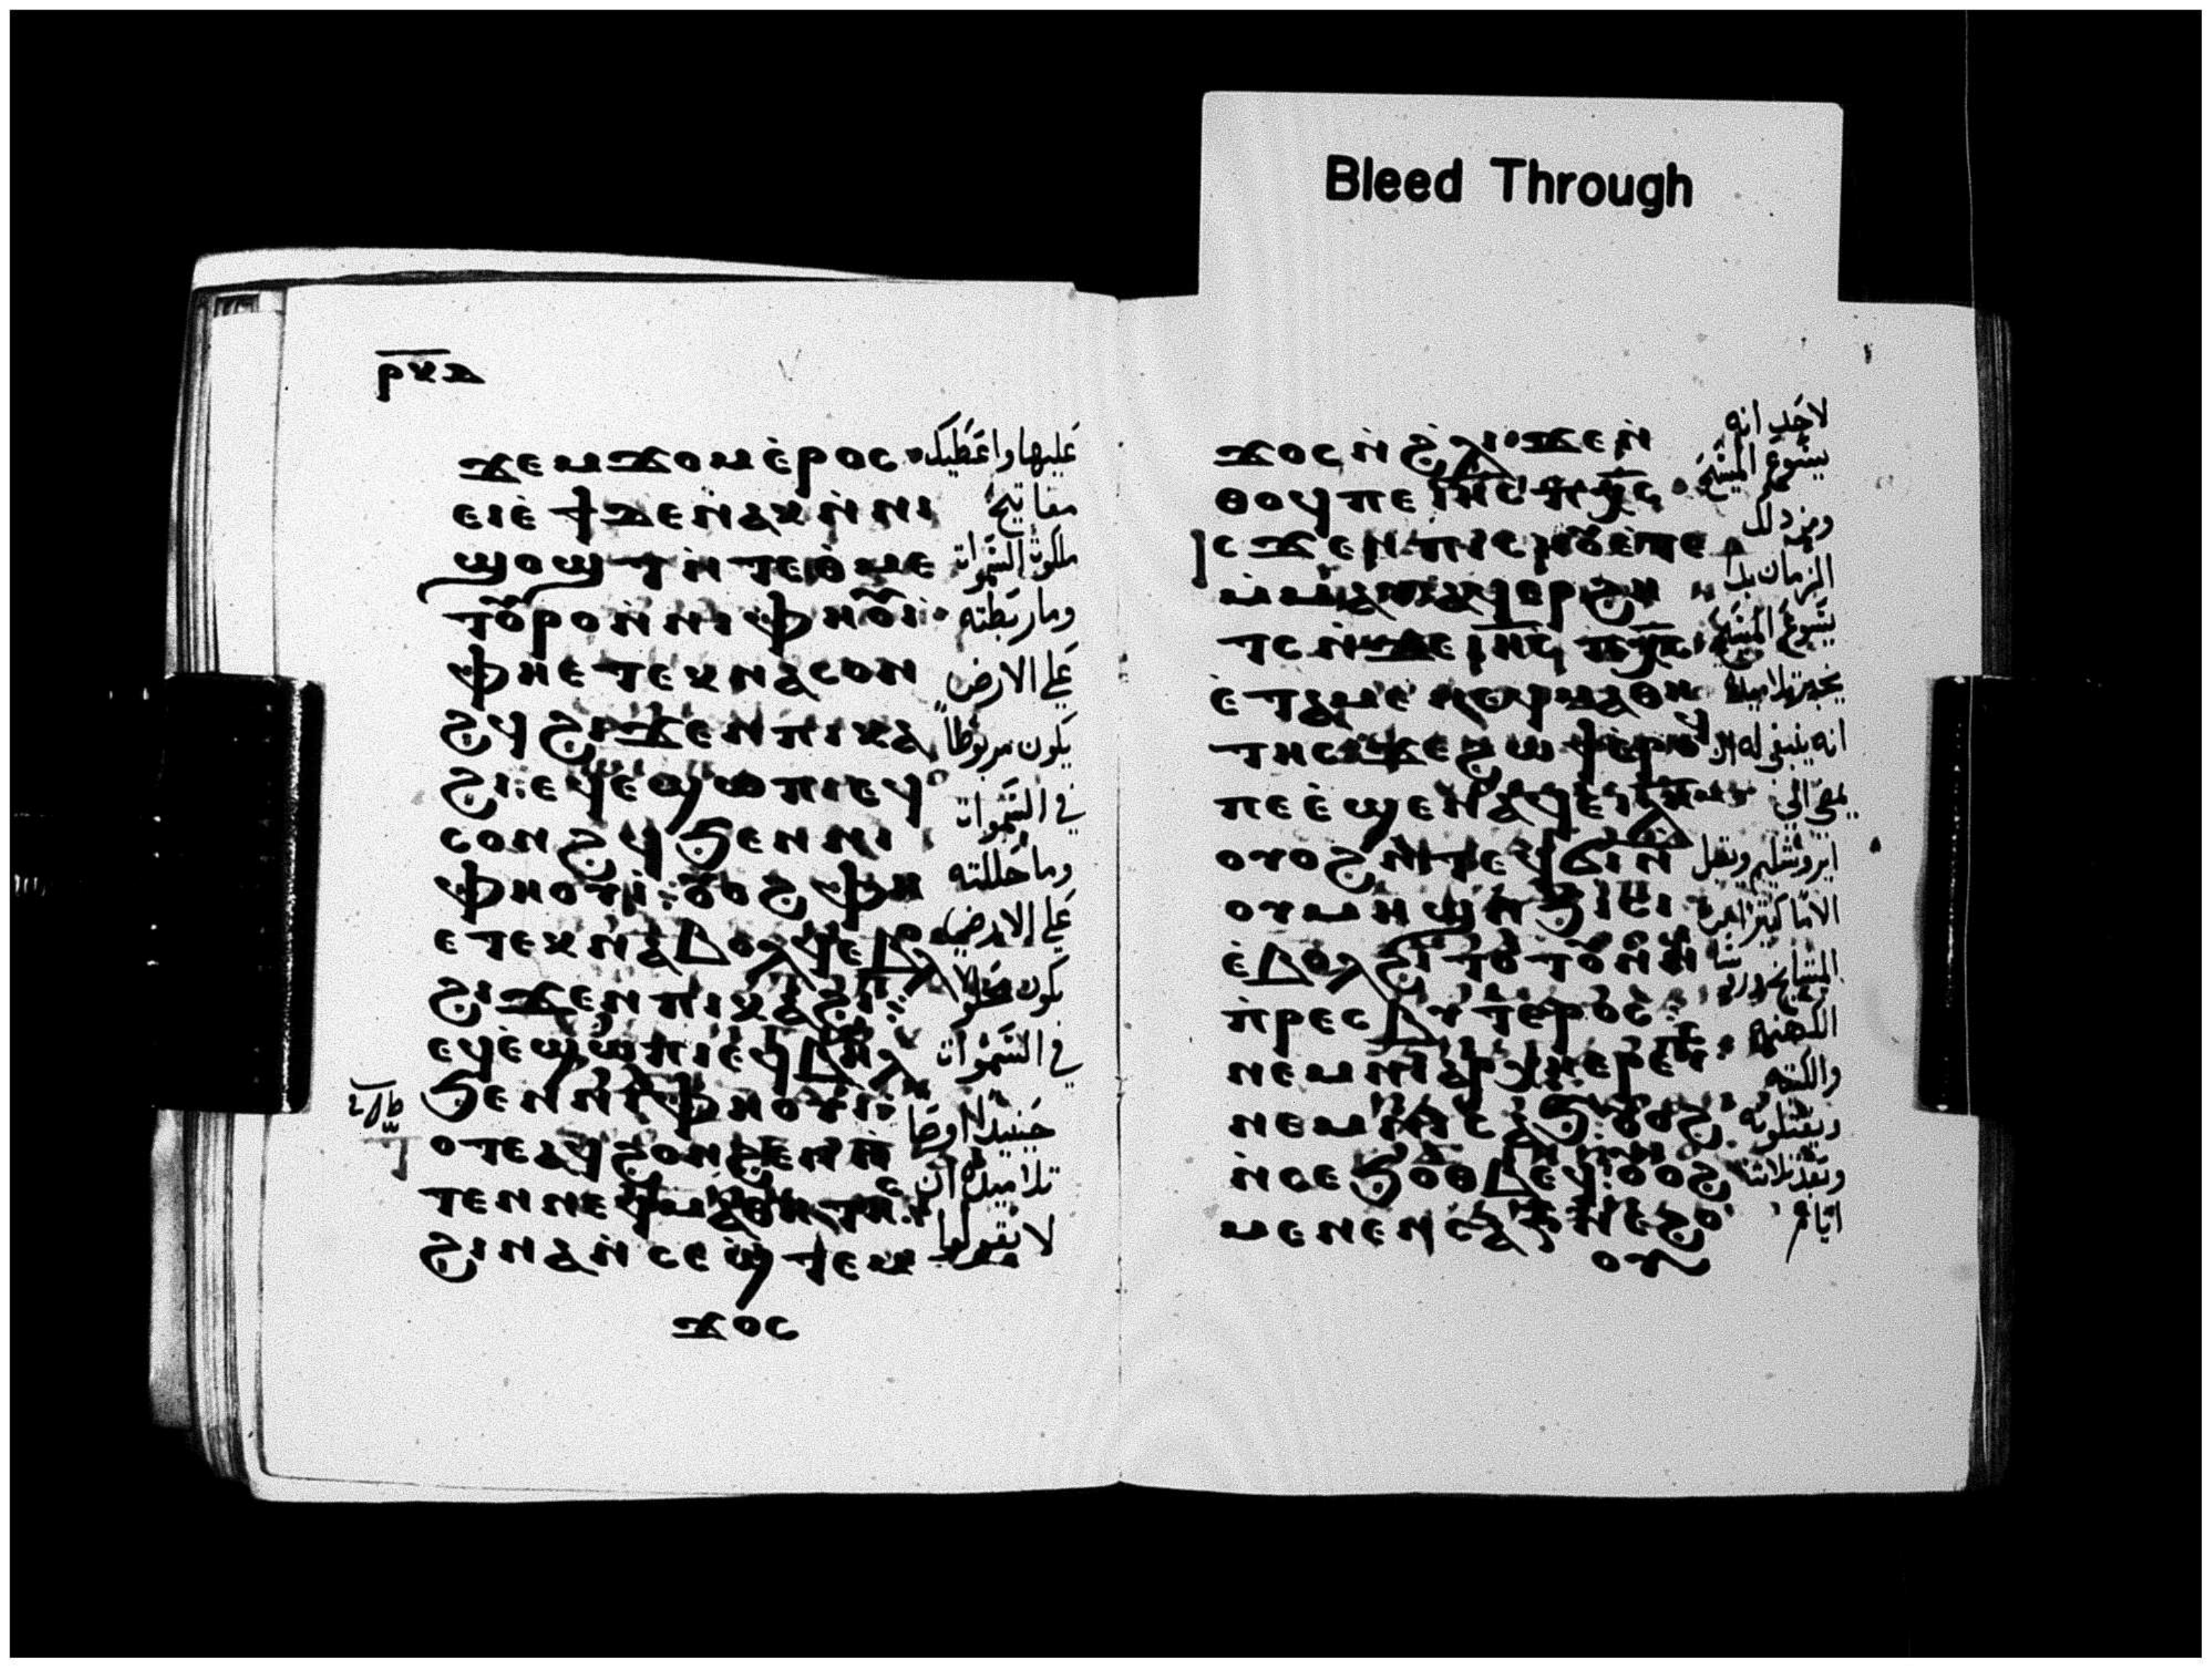 Bleed Through
ϫⲉⲙϫⲟⲙⲉ̀ⲣⲟⲥ
ⲉⲓⲉ̀ϯϫⲉⲛ̀ⲁⲕⲛ̀ⲛⲓ
ϣⲟϣⲧⲛ̀ⲧⲉⲑⲙⲉ
ⲧⲟⲩⲣⲟⲛ̀ⲛⲓⲫⲏⲟⲩⲓ
ⲫⲏⲉⲧⲉⲕⲛⲁⲥⲟⲛ
ϩϥϩⲓϫⲉⲛⲡⲓⲕⲁ
ϩⲓ: ⲉϥⲉϣⲱⲡⲓⲉϥ
ⲥⲟⲛϩϥϧⲉⲛⲛⲓ
ⲫⲏⲟⲩⲓ: ⲟⲩⲟϩⲫⲏ
ⲉⲧⲉⲕⲛⲁⲃⲟⲗϥⲉⲃⲟⲗ
ϩⲓϫⲉⲛⲡⲓⲕⲁϩⲓ:
ⲉϥⲉ̀ϣⲱⲡⲓⲉϥⲃⲏⲗ
ϧⲉⲛⲛⲓⲫⲏⲟⲩⲓ:
ⲟⲧⲉⲁϥϩⲟⲛϩⲉⲛⲛ̀
ⲧⲉⲛⲛⲉϥⲙⲁⲑⲏⲧⲏⲥ
ϩⲓⲛⲁⲛ̀ⲥⲉϣⲧⲉⲙ
ϫⲟⲥ
عليها واعطيك
مفاتيح
ملكوت السموات
وما ربطته
على الارض
يكون مربوطا
في السموات
وما حللته
على الارض
يكون محلولا
في السموات
حينيذ اوصا
تلاميده ان
لا يقولوا
ϫⲟⲥⲛ̀ϩ̀ⲗⲓ ϫⲉⲛ̀
ⲑⲟϥⲡⲉ ⲓⲏⲥ ⲡⲭⲥ
ⲓⲥϫⲉⲛⲡⲓⲥⲏⲟⲩⲉ̀ⲧⲉ
ⲙ̀ⲙⲁⲩⲁϥⲉⲣϩⲏ
ⲧⲥⲛ̀ϫⲉ ⲓⲏⲥ ⲡⲭⲥ
ⲉ̀ⲧⲁⲙⲉ ⲛⲉϥⲙⲁⲑⲏ
ⲧⲏⲥ ϫⲉϩⲱϯⲉⲣⲟϥ
ⲡⲉⲉ̀ϣⲉⲛⲁϥⲉⲓⲗⲏⲙ
ⲟⲩⲟϩⲛ̀ⲧⲉϥϭⲓⲛ̀
ⲟⲩⲙⲏϣⲛ̀ϧⲓⲥⲓ
ⲉ̀ⲃⲟⲗϩⲓⲧⲟⲧⲟⲩⲛ̀ⲛⲓ
ⲡ̀ⲣⲉⲥⲃⲩⲧⲉⲣⲟⲥ
ⲛⲉⲙⲛⲓⲁⲣⲭⲏⲉⲣⲉⲩⲥ
ⲛⲉⲙⲛⲓⲥⲁϧ: ⲟⲩⲟϩ
ⲛ̀ⲥⲉϧⲟⲑⲃⲉϥ: ⲟⲩⲟϩ
ⲙⲉⲛⲉⲛⲥⲁⲅ̅ⲛ̀ⲉϩⲟ
ⲟⲩ
لاحد انه
يسوع المسيح
ومن ذلك
الزمان بدا
يسوع المسيح
يخبر تلاميده
انه ينبغي له ان
يمضي الى
ايروشليم ويقبل
الاما كثيرا من
المشايخ وروسا
الكهنه
والكتبه
ويقتلونه
وبعد ثلاثه
ايام